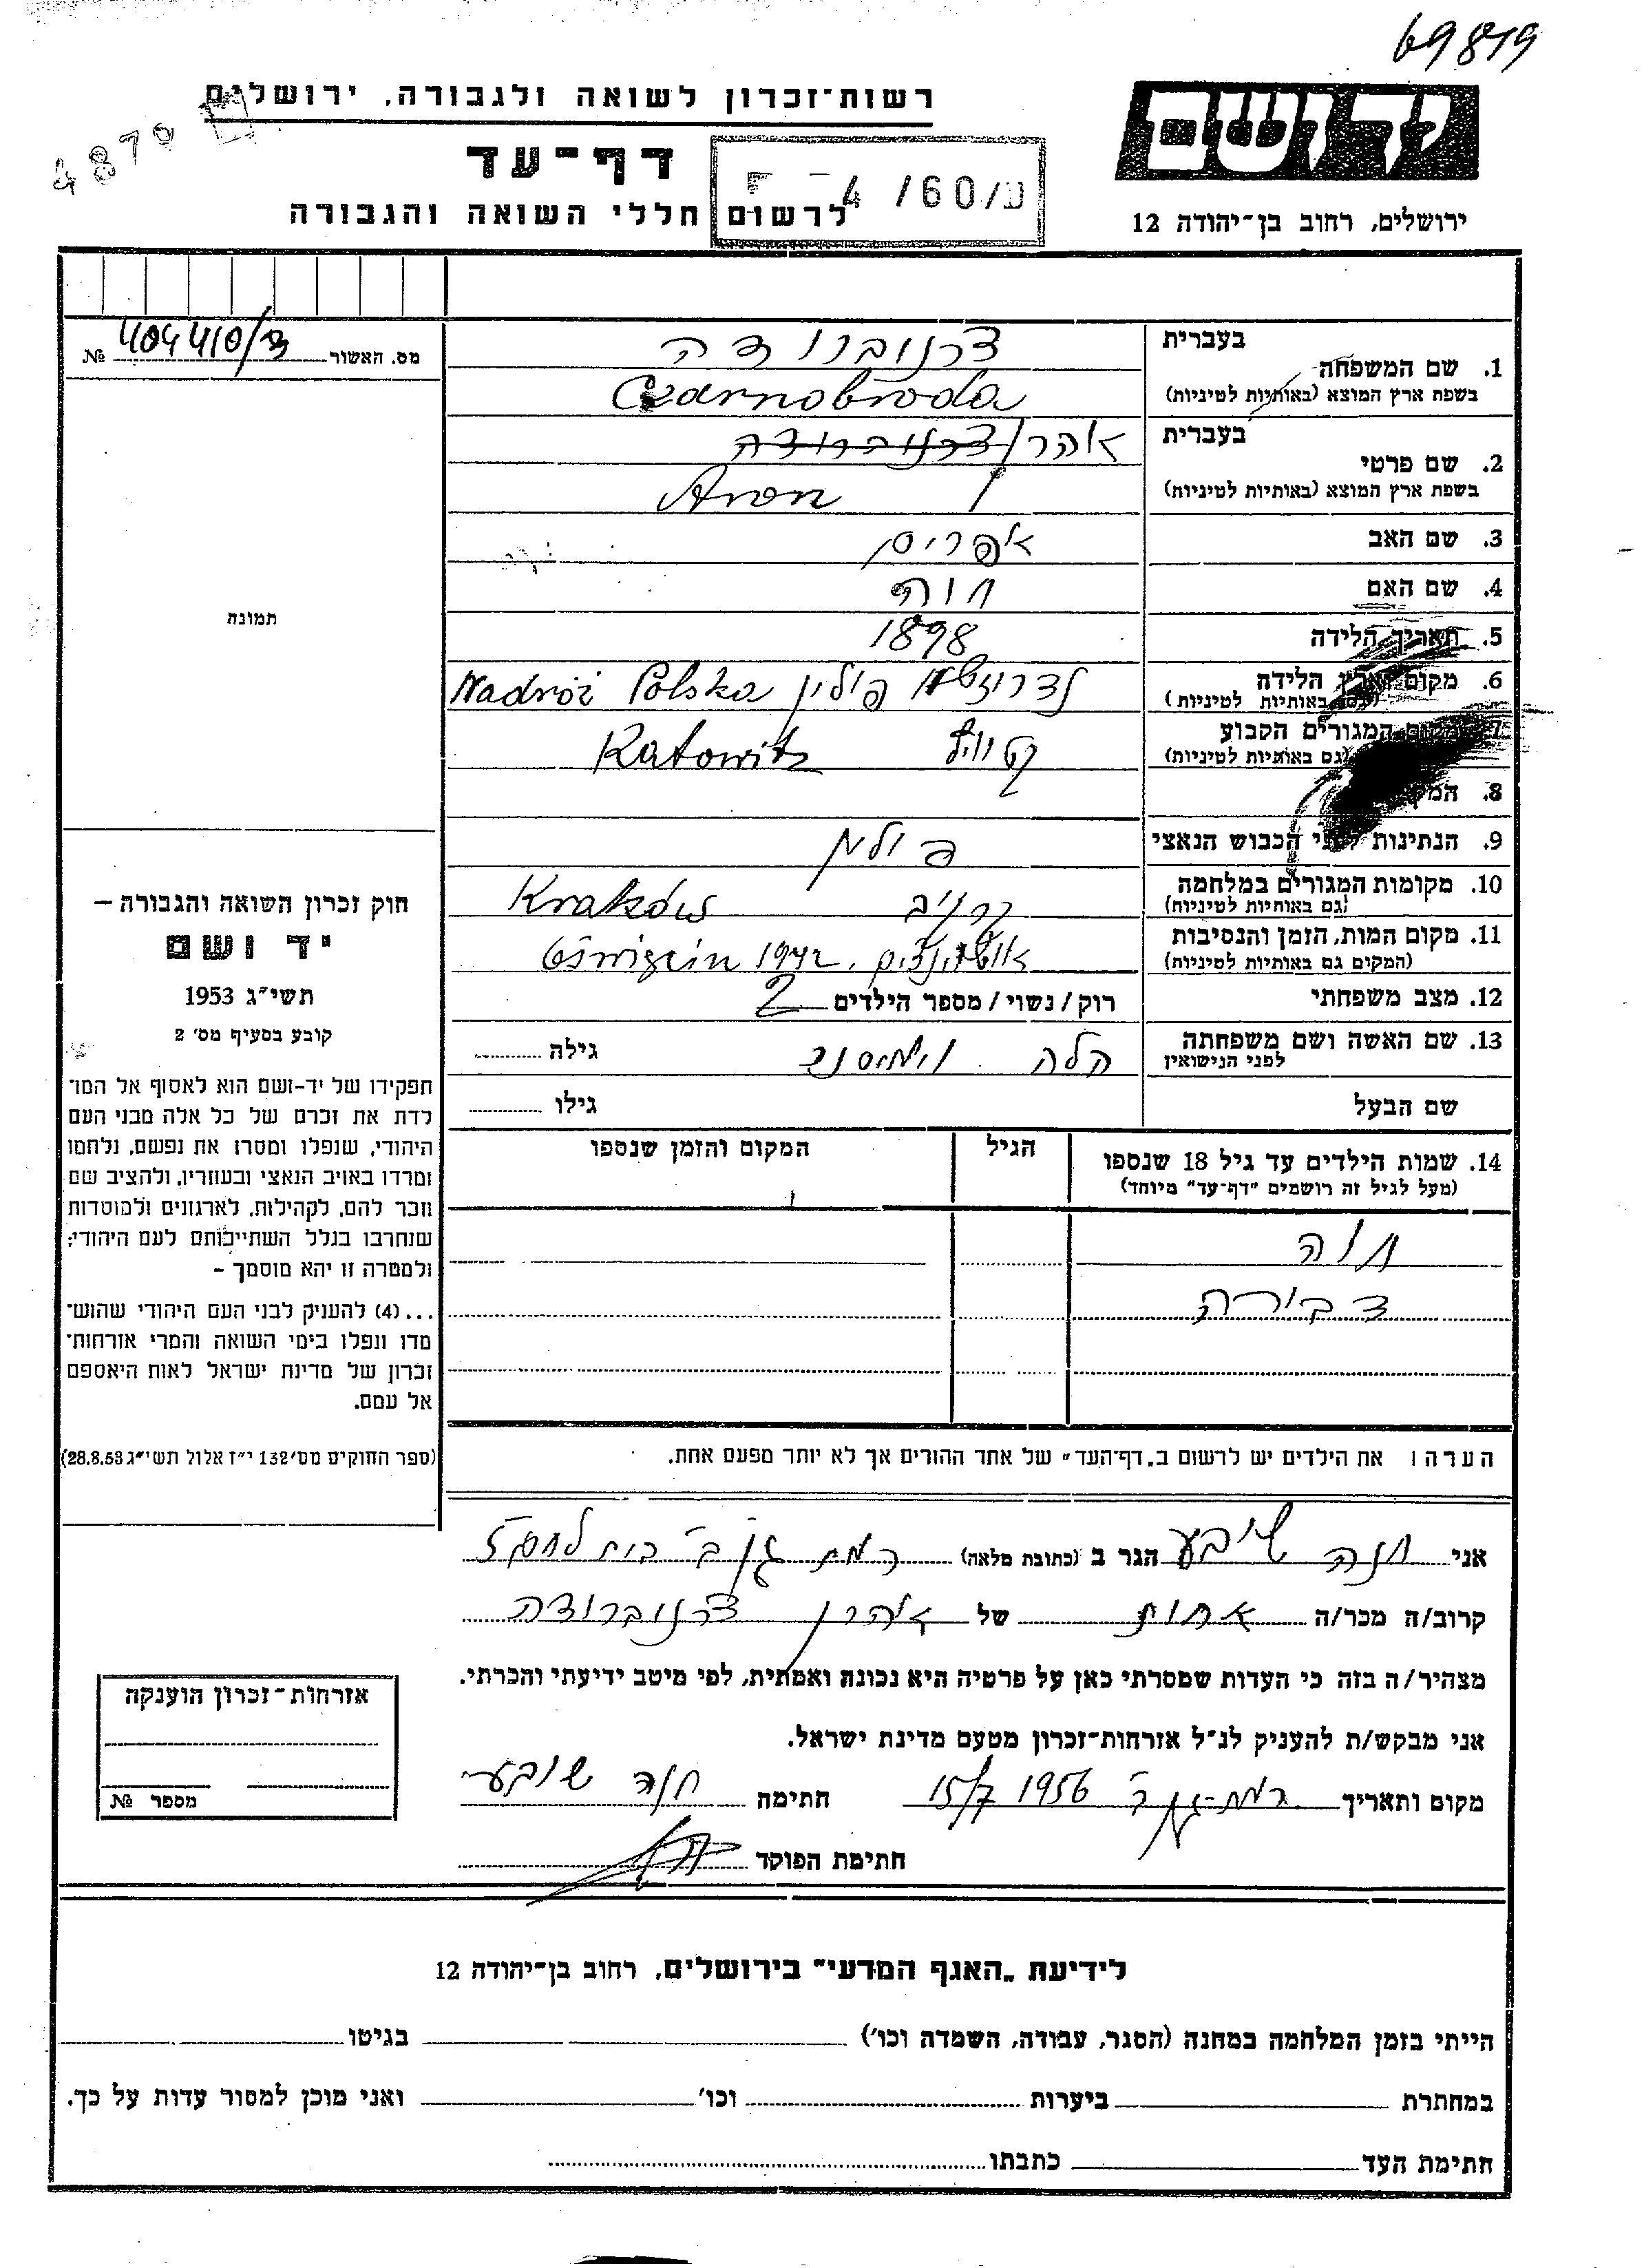 69819
רשות-זכרון לשואה ולגבורה, ירושלים
ידושם
4870
דף-עד
ע/60/ 4
לרשום חללי השואה והגבורה
ירושלים, רחוב בן-יהודה 12
מס. האשור 404410/3 №
בעברית
צרנוברודה
1. שם המשפחה
בשפת ארץ המוצא (באותיות לטיניות)
Czarnobroda
בעברית
אהרן צרנוברודה
2. שם פרטי
בשפת ארץ המוצא (באותיות לטיניות)
Aron
3. שם האב
אפרים
4. שם האם
חוה
5. תאריך הלידה
1898
6. מקום וארץ הלידה
(גם באותיות לטיניות)
פולין Nadróż Polska
7. מקום המגורים הקבוע
(גם באותיות לטיניות)
קטוויץ Katowitz
8.
9. הנתינות לפני הכבוש הנאצי
פולין
10. מקומות המגורים במלחמה
(גם באותיות לטיניות)
Kraków
11. מקום המות, הזמן והנסיבות
(המקום גם באותיות לטיניות)
1942
12. מצב משפחתי
רוק/נשוי/מספר הילדים 2
13. שם האשה ושם משפחתה
לפני הנישואין
הלה
גילה
שם הבעל
גילו
14. שמות הילדים עד גיל 18 שנספו
(מעל לגיל זה רושמים "דף-עד" מיוחד)
הגיל
המקום והזמן שנספו
חוה
דבורה
הערה ו את הילדים יש לרשום ב„דף-העד" של אחד ההורים אך לא יותר מפעם אחת.
אני חנה שובע הגר ב (כתובת מלאה) רמת גן ב' בית לחם 5
קרוב/ה מכר/ה אחות של אהרן צרנוברודה
מצהיר/ה בזה כי העדות שמסרתי כאן על פרטיה היא נכונה ואמתית, לפי מיטב ידיעתי והכרתי.
אני מבקש/ת להעניק לנ"ל אזרחות-זכרון מטעם מדינת ישראל.
מקום ותאריך רמת-גן ב' 15/7 1956 חתימה חנה שובע
חתימת הפוקד
תמונה
חוק זכרון השואה והגבורה –
יד ושם
תשי"ג 1953
קובע בסעיף מס' 2
תפקידו של יד-ושם הוא לאסוף אל המו־
לדת את זכרם של כל אלה מבני העם
היהודי, שנפלו ומסרו את נפשם, נלחמו
ומרדו באויב הנאצי ובעוזריו, ולהציב שם
וזכר להם, לקהילות, לארגונים ולמוסדות
שנחרבו בגלל השתייכותם לעם היהודי;
ולמטרה זו יהא מוסמך –
...(4) להעניק לבני העם היהודי שהוש־
מדו ונפלו בימי השואה והמרי אזרחות־
זכרון של מדינת ישראל לאות היאספם
אל עמם.
(ספר החוקים מס' 132 י"ז אלול תשי"ג 28.8.53)
אזרחות-זכרון הוענקה
מספר №
לידיעת „האגף המדעי" בירושלים, רחוב בן-יהודה 12
הייתי בזמן המלחמה במחנה (הסגר, עבודה, השמדה וכו') בגיטו
במחתרת ביערות וכו' ואני מוכן למסור עדות על כך.
חתימת העד כתבתו